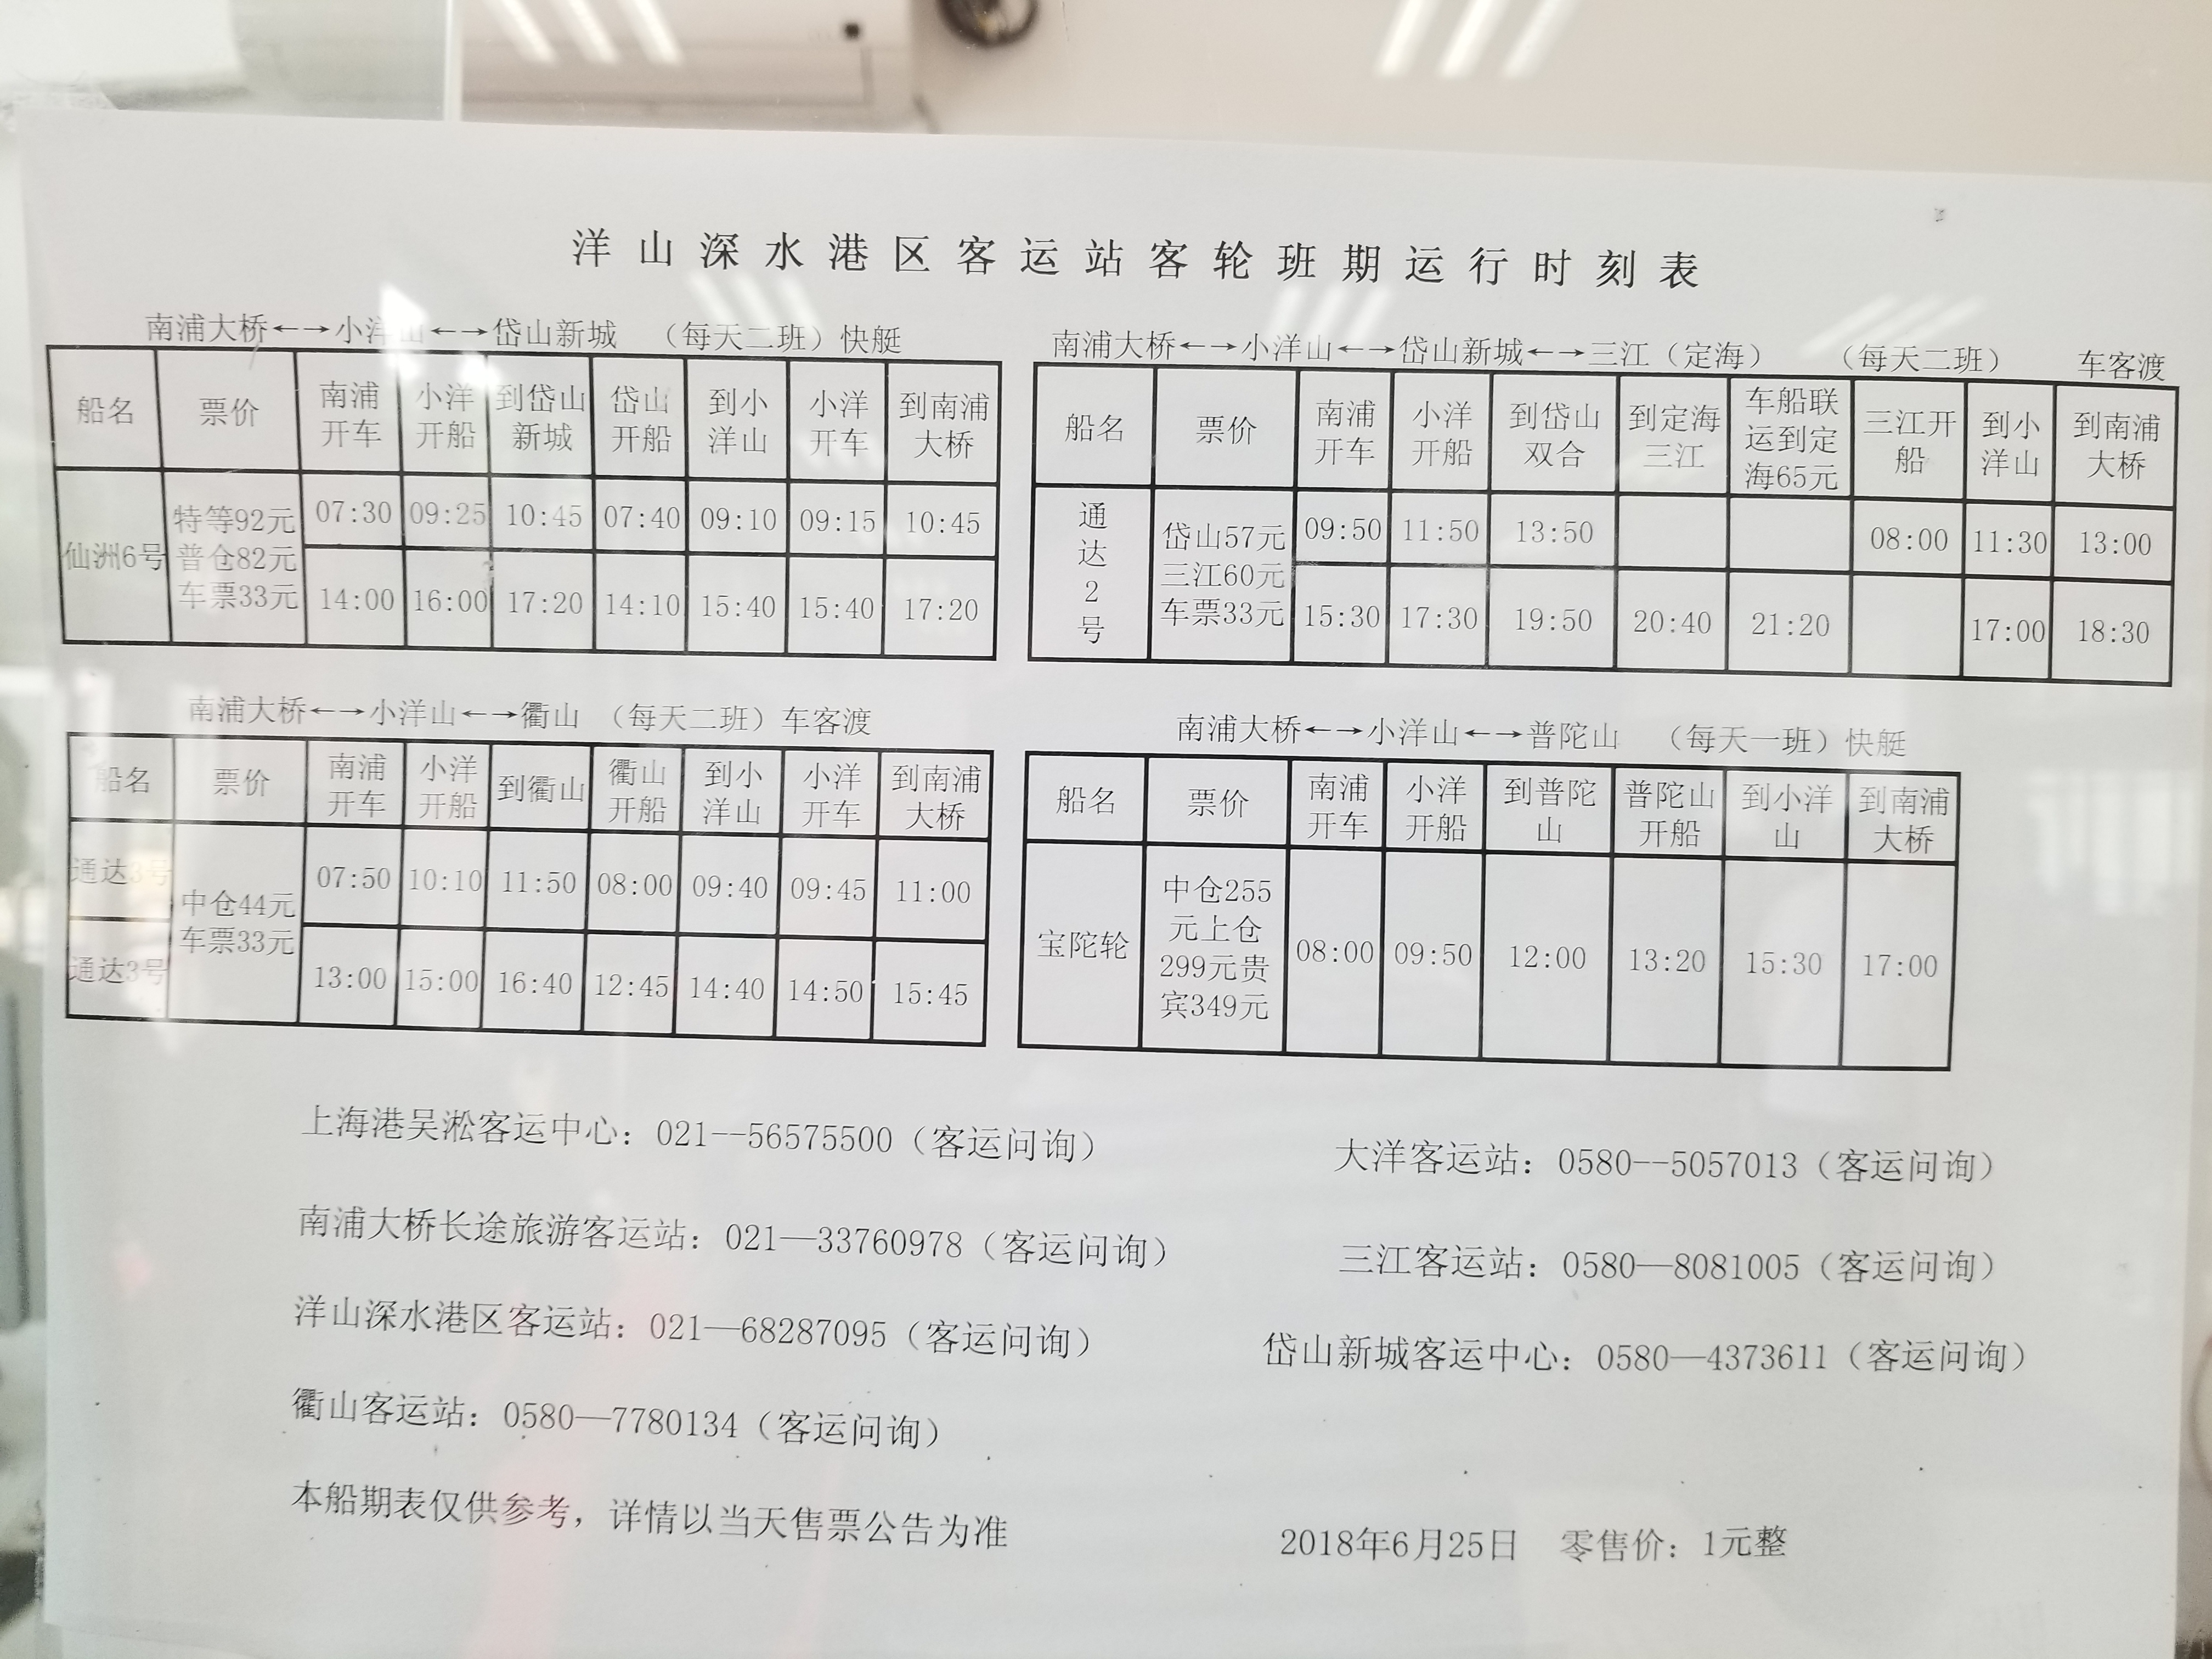 洋山深水港区客运站客轮班期运行时刻表
南浦大桥←→小洋山←→岱山新城 （每天二班）快艇
船名 票价 南浦开车 小洋开船 到岱山新城 岱山开船 到小洋山 小洋开车 到南浦大桥
仙洲6号 特等92元 普仓82元 车票33元 07:30 09:25 10:45 07:40 09:10 09:15 10:45
14:00 16:00 17:20 14:10 15:40 15:40 17:20
南浦大桥←→小洋山←→岱山新城←→三江（定海） （每天二班） 车客渡
船名 票价 南浦开车 小洋开船 到岱山双合 到定海三江 车船联运到定海65元 三江开船 到小洋山 到南浦大桥
通达2号 岱山57元 三江60元 车票33元 09:50 11:50 13:50 08:00 11:30 13:00
15:30 17:30 19:50 20:40 21:20 17:00 18:30
南浦大桥←→小洋山←→衢山 （每天二班）车客渡
船名 票价 南浦开车 小洋开船 到衢山 衢山开船 到小洋山 小洋开车 到南浦大桥
通达3号 中仓44元 车票33元 07:50 10:10 11:50 08:00 09:40 09:45 11:00
通达3号 13:00 15:00 16:40 12:45 14:40 14:50 15:45
南浦大桥←→小洋山←→普陀山 （每天一班）快艇
船名 票价 南浦开车 小洋开船 到普陀山 普陀山开船 到小洋山 到南浦大桥
宝陀轮 中仓255元上仓299元贵宾349元 08:00 09:50 12:00 13:20 15:30 17:00
上海港吴淞客运中心：021--56575500（客运问询）
大洋客运站：0580--5057013（客运问询）
南浦大桥长途旅游客运站：021—33760978（客运问询）
三江客运站：0580—8081005（客运问询）
洋山深水港区客运站：021—68287095（客运问询）
岱山新城客运中心：0580—4373611（客运问询）
衢山客运站：0580—7780134（客运问询）
本船期表仅供参考，详情以当天售票公告为准
2018年6月25日 零售价：1元整